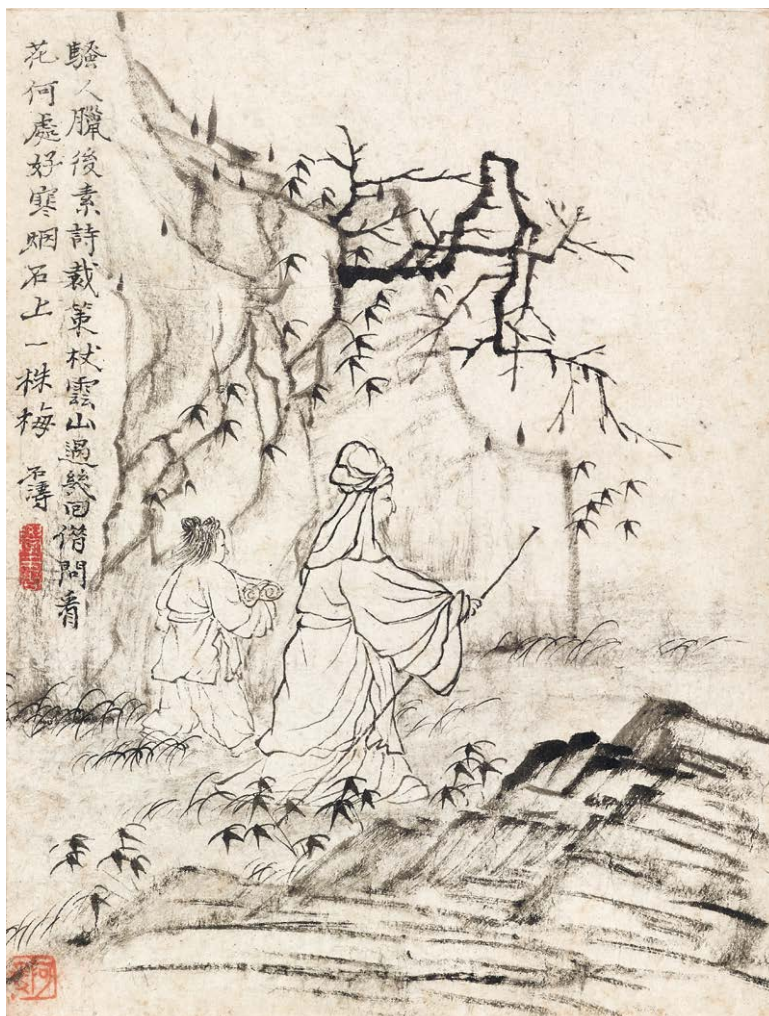 騷人臘後素詩裁策杖雲山過総回借問看
花何處好寒烟石上一株梅
石濤